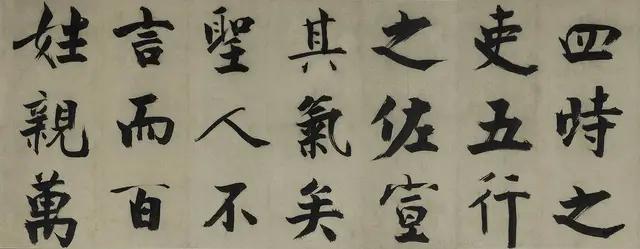 四時之
吏五行
之佐宣
其氣矣
聖人不
言而百
姓親萬